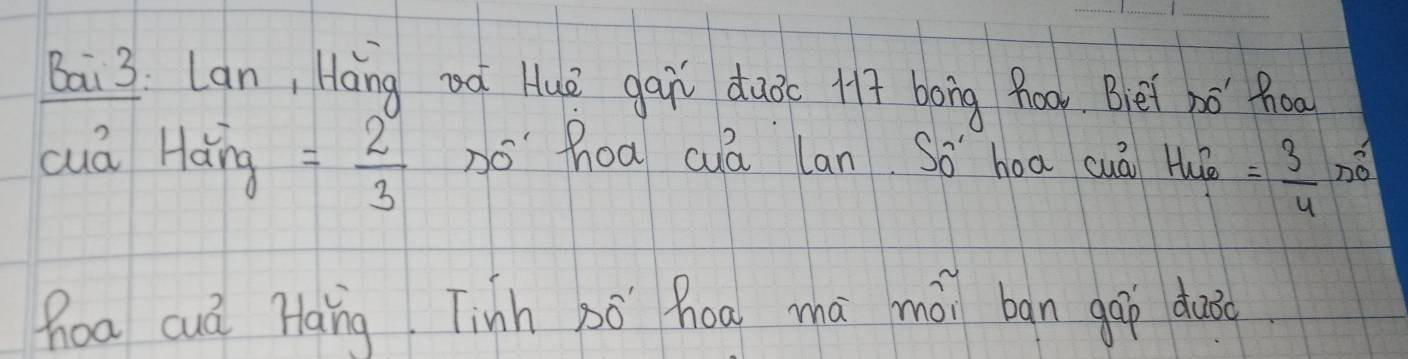 Bài 3: Lan, Hằng và Huệ gấp được 117 bông hoa. Biết số hoa
của Hằng = 2/3 số hoa của Lan. Số hoa của Huệ = 3/4 số
hoa của Hằng. Tính số hoa mà mỗi bạn gấp được.